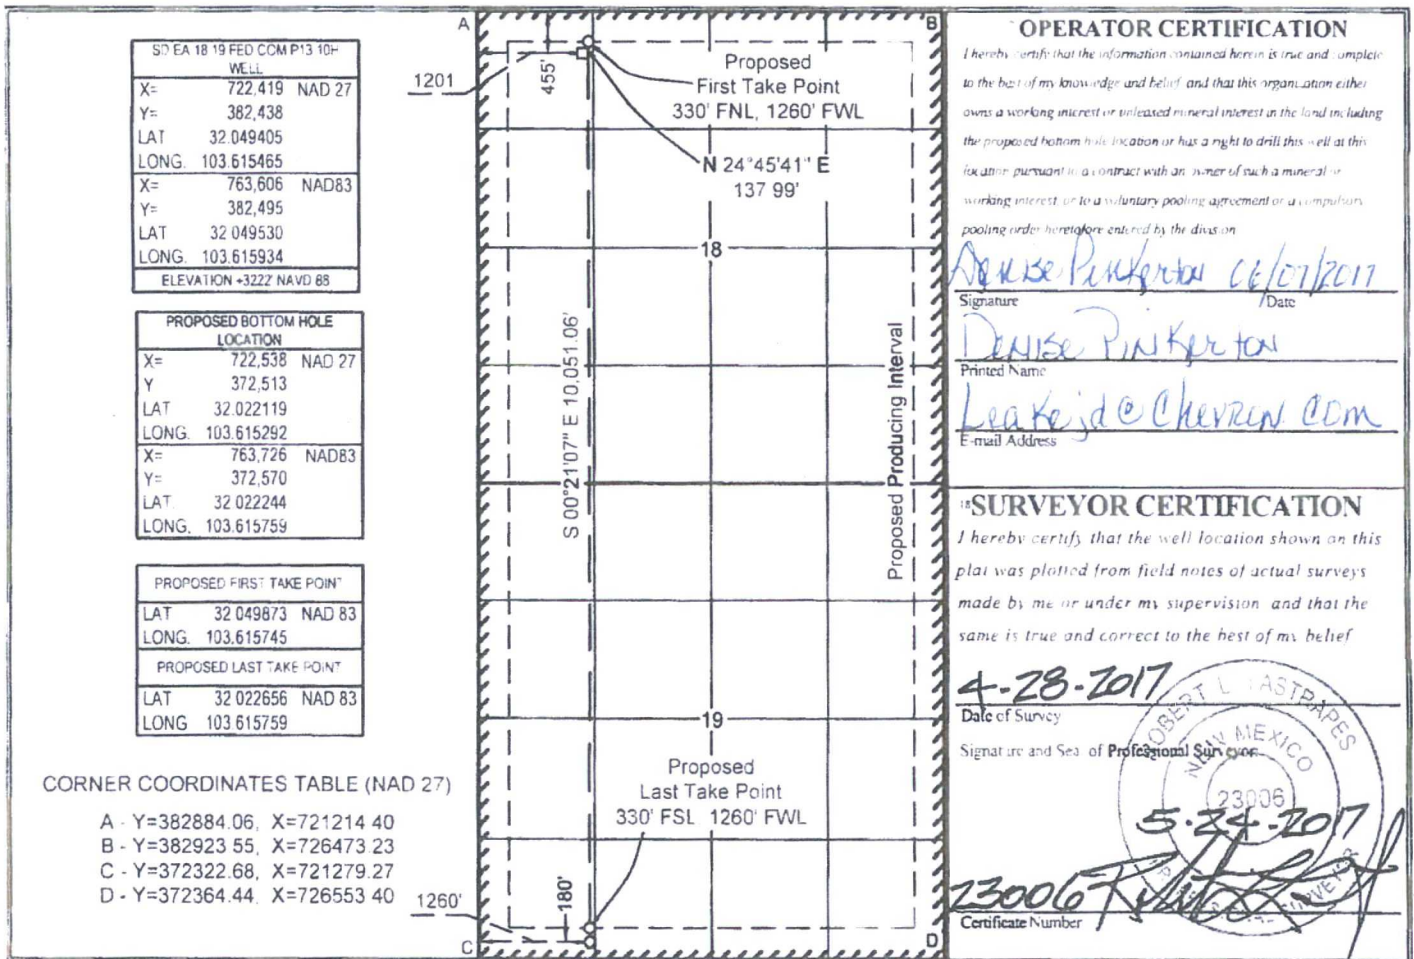 SD EA 18 19 FED COM P13 10H
WELL
X= 722,419 NAD 27
Y= 382,438
LAT 32.049405
LONG. 103.615465
X= 763,606 NAD83
Y= 382,495
LAT 32 049530
LONG. 103.615934
ELEVATION +3222' NAVD 88
PROPOSED BOTTOM HOLE
LOCATION
X= 722,538 NAD 27
Y 372,513
LAT 32.022119
LONG. 103.615292
X= 763,726 NAD83
Y= 372,570
LAT. 32 022244
LONG. 103.615759
PROPOSED FIRST TAKE POINT
LAT 32 049873 NAD 83
LONG. 103.615745
PROPOSED LAST TAKE POINT
LAT 32 022656 NAD 83
LONG 103 615759
CORNER COORDINATES TABLE (NAD 27)
A - Y=382884.06, X=721214 40
B - Y=382923 55, X=726473.23
C - Y=372322.68, X=721279.27
D - Y=372364.44, X=726553 40
A
B
1201
455'
Proposed
First Take Point
330' FNL, 1260' FWL
N 24°45'41" E
137 99'
18
S 00°21'07" E 10,051.06'
Proposed Producing Interval
19
Proposed
Last Take Point
330' FSL 1260' FWL
1260'
180'
C
D
OPERATOR CERTIFICATION
I hereby certify that the information contained herein is true and complete
to the best of my knowledge and belief, and that this organization either
owns a working interest or unleased mineral interest in the land including
the proposed bottom hole location or has a right to drill this well at this
location pursuant to a contract with an owner of such a mineral or
working interest, or to a voluntary pooling agreement or a compulsory
pooling order heretofore entered by the division
Denise Pinkerton 06/07/2017
Signature Date
Denise Pinkerton
Printed Name
Leakejd@Chevron com
E-mail Address
18 SURVEYOR CERTIFICATION
I hereby certify that the well location shown on this
plat was plotted from field notes of actual surveys
made by me or under my supervision and that the
same is true and correct to the best of my belief
4-28-2017
Date of Survey
Signature and Seal of Professional Surveyor
ROBERT L LASTRAPES
NEW MEXICO
23006
PROFESSIONAL SURVEYOR
5-24-2017
23006
Certificate Number